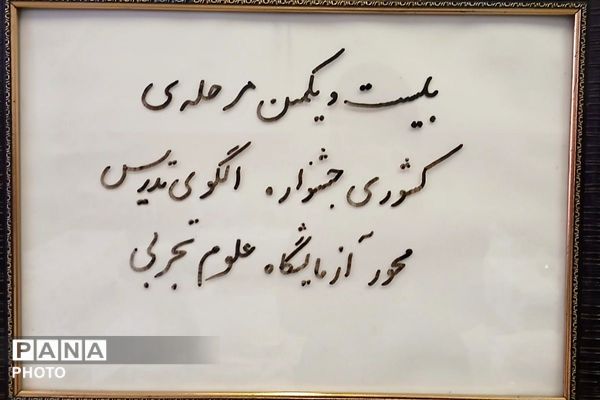 بیست و یکمین مرحله‌ی
کشوری جشنواره الگوی تدریس
محور آزمایشگاه علوم تجربی
PANA
PHOTO